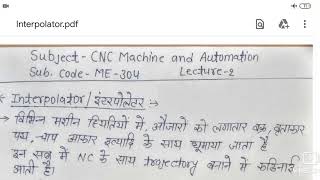 Interpolator.pdf
Subject - CNC Machine and Automation
Sub. Code - ME-304 Lecture-2
* Interpolator/इंटरपोलेटर →
→ विभिन्न मशीन स्थितियों में, औजारों को लगातार वक्र, वृत्ताकार
पथ, चाप आकार इत्यादि के साथ घुमाया जाता है
इन सब में NC के साथ trajectory बनाने में कठिनाई
आती है।